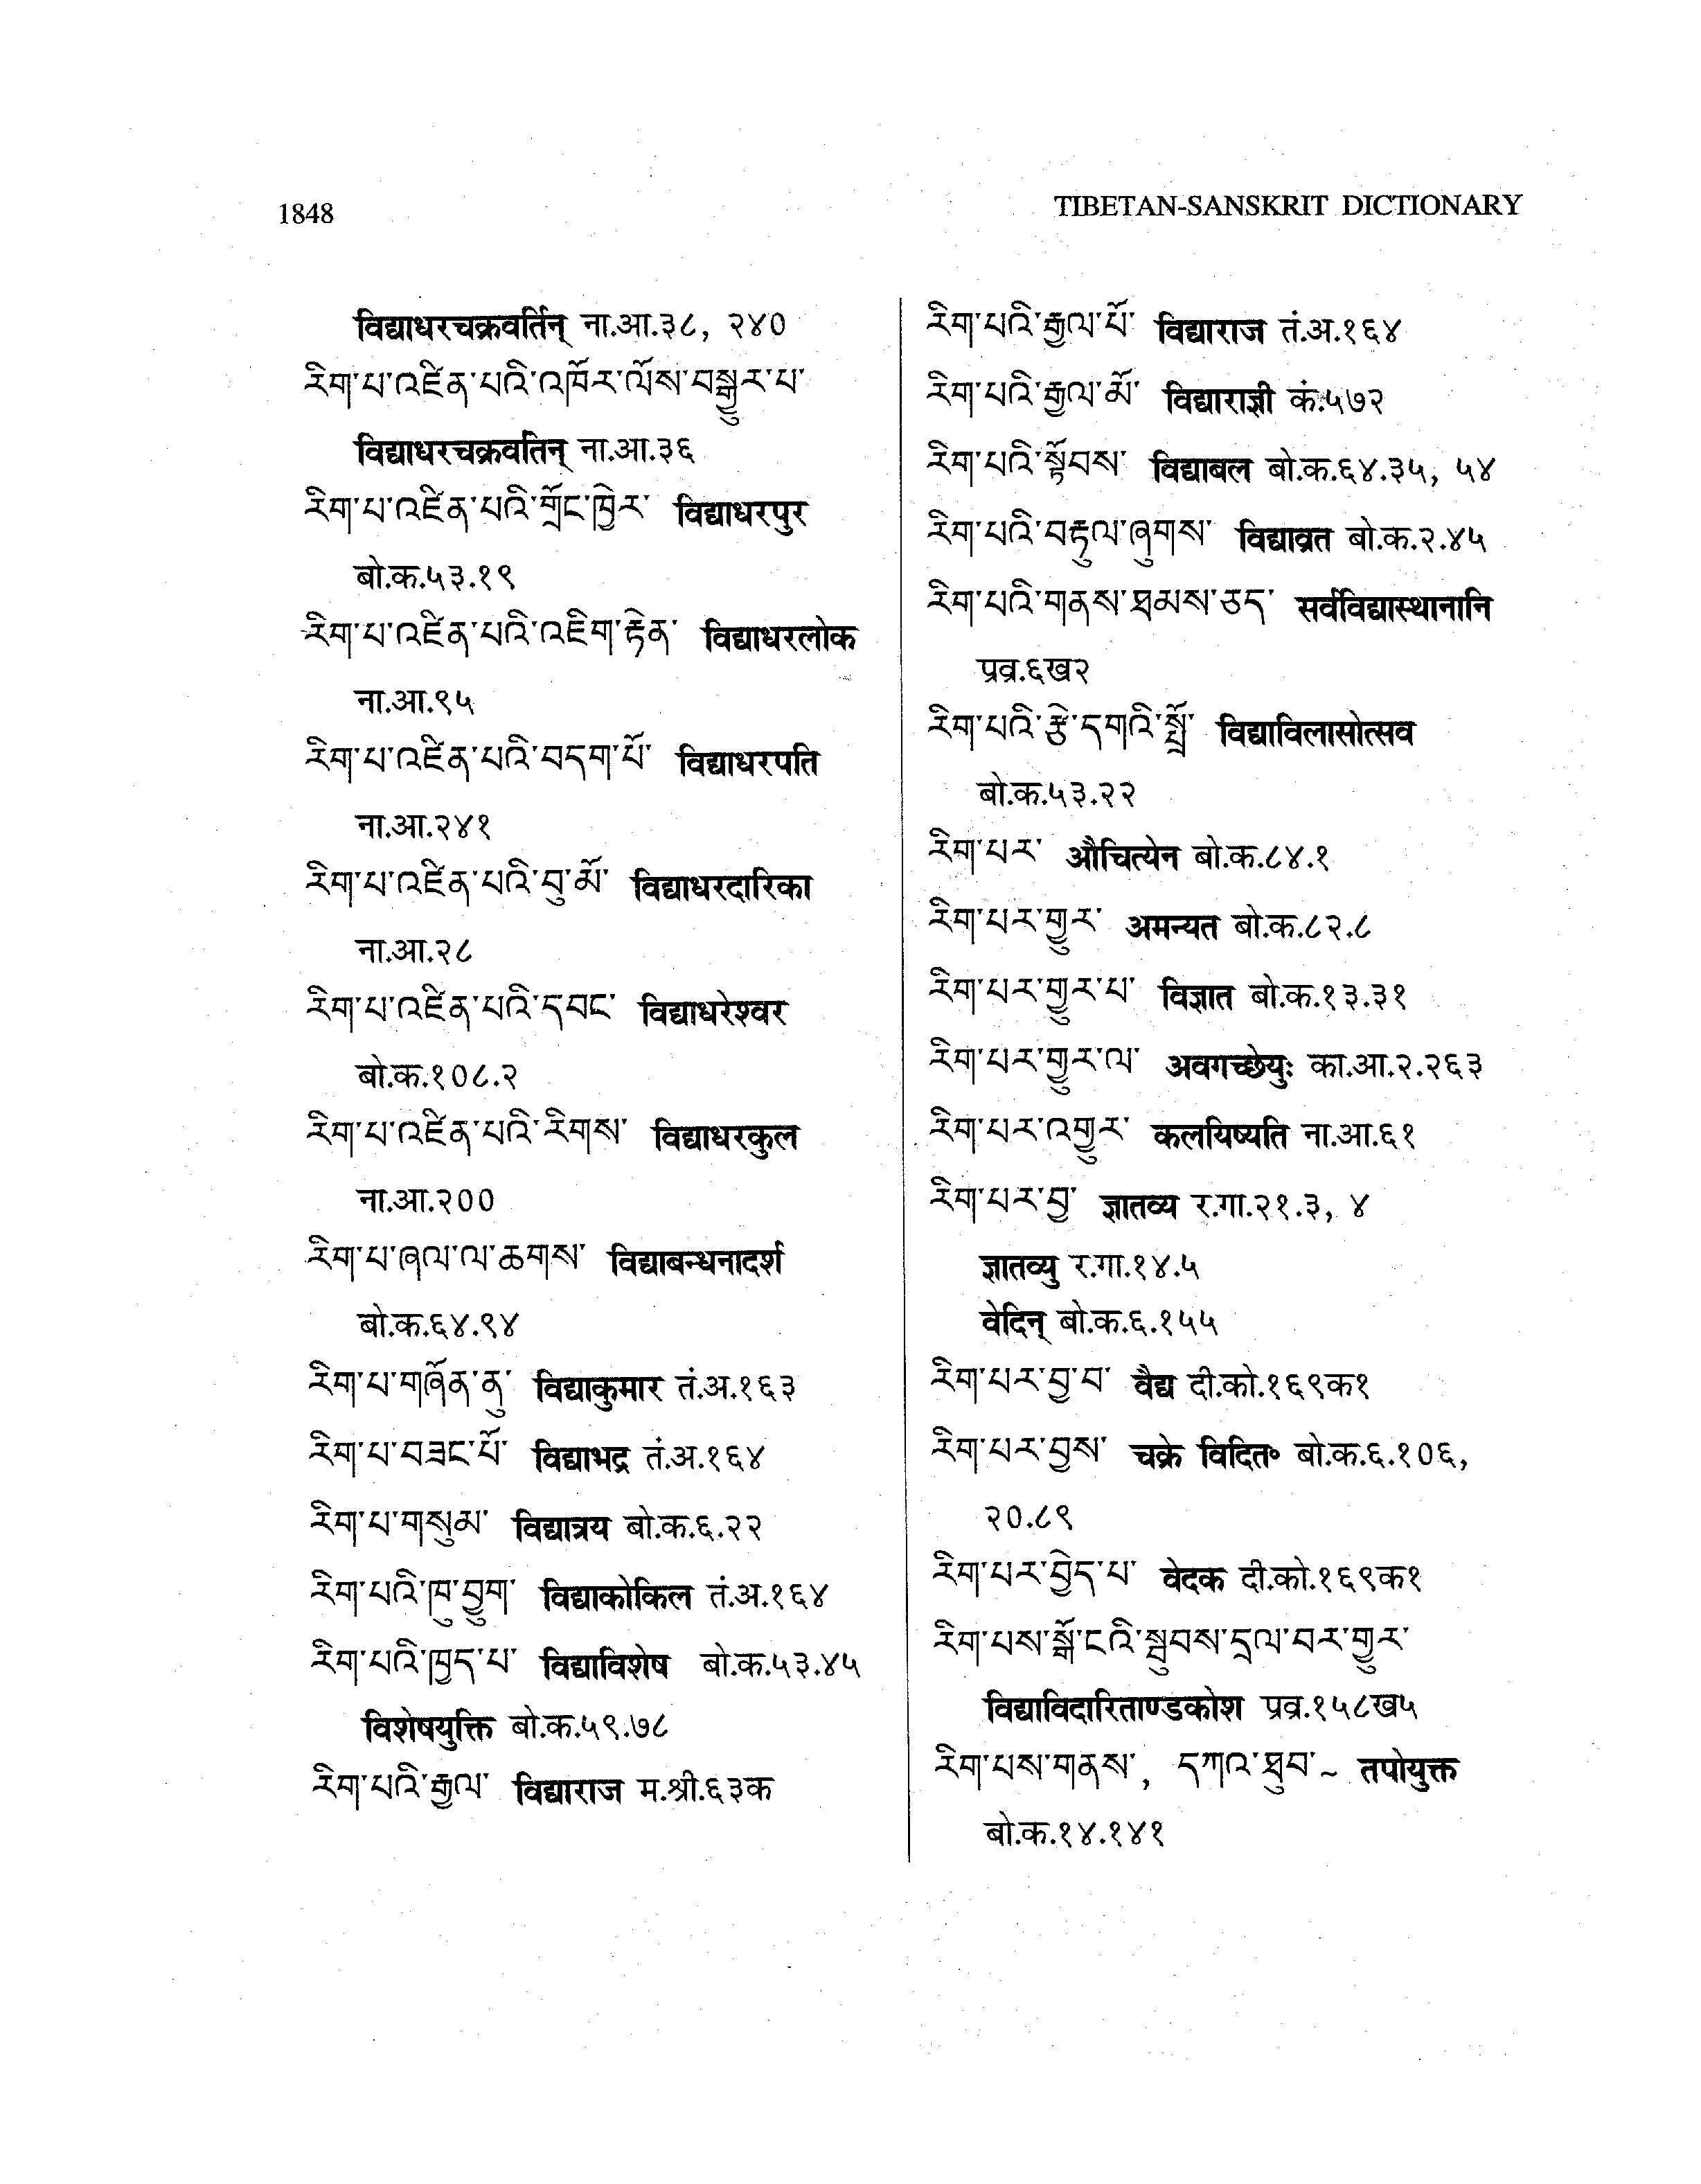 1848
TIBETAN-SANSKRIT DICTIONARY
विद्याधरचक्रवर्तिन् ना.आ.३८, २४०
རིག་པ་འཛིན་པའི་འཁོར་ལོས་བསྒྱུར་པ་
विद्याधरचक्रवतिन् ना.आ.३६
རིག་པ་འཛིན་པའི་གྲོང་ཁྱེར་ विद्याधरपुर
बो.क.५३.१९
རིག་པ་འཛིན་པའི་འཇིག་རྟེན་ विद्याधरलोक
ना.आ.९५
རིག་པ་འཛིན་པའི་བདག་པོ་ विद्याधरपति
ना.आ.२४१
རིག་པ་འཛིན་པའི་བུ་མོ་ विद्याधरदारिका
ना.आ.२८
རིག་པ་འཛིན་པའི་དབང་ विद्याधरेश्वर
बो.क.१०८.२
རིག་པ་འཛིན་པའི་རིགས་ विद्याधरकुल
ना.आ.२००
རིག་པ་ཞལ་ལ་ཆགས་ विद्याबन्धनादर्श
बो.क.६४.९४
རིག་པ་གཞོན་ནུ་ विद्याकुमार तं.अ.१६३
རིག་པ་བཟང་པོ་ विद्याभद्र तं.अ.१६४
རིག་པ་གསུམ་ विद्यात्रय बो.क.६.२२
རིག་པའི་ཁུ་བྱུག་ विद्याकोकिल तं.अ.१६४
རིག་པའི་ཁྱད་པ་ विद्याविशेष बो.क.५३.४५
विशेषयुक्ति बो.क.५९.७८
རིག་པའི་རྒྱལ་ विद्याराज म.श्री.६३क
རིག་པའི་རྒྱལ་པོ་ विद्याराज तं.अ.१६४
རིག་པའི་རྒྱལ་མོ་ विद्याराज्ञी कं.५७२
རིག་པའི་སྟོབས་ विद्याबल बो.क.६४.३५, ५४
རིག་པའི་བརྟུལ་ཞུགས་ विद्याव्रत बो.क.२.४५
རིག་པའི་གནས་ཐམས་ཅད་ सर्वविद्यास्थानानि
प्रव्र.६ख२
རིག་པའི་རྩེ་དགའི་སྤྲོ་ विद्याविलासोत्सव
बो.क.५३.२२
རིག་པར་ औचित्येन बो.क.८४.१
རིག་པར་གྱུར་ अमन्यत बो.क.८२.८
རིག་པར་གྱུར་པ་ विज्ञात बो.क.१३.३१
རིག་པར་གྱུར་ལ་ अवगच्छेयुः का.आ.२.२६३
རིག་པར་འགྱུར་ कलयिष्यति ना.आ.६१
རིག་པར་བྱ་ ज्ञातव्य र.गा.२१.३, ४
ज्ञातव्यु र.गा.१४.५
वेदिन् बो.क.६.१५५
རིག་པར་བྱ་བ་ वैद्य दी.को.१६९क१
རིག་པར་བྱས་ चक्रे विदित॰ बो.क.६.१०६,
२०.८९
རིག་པར་བྱེད་པ་ वेदक दी.को.१६९क१
རིག་པས་སྒོ་ངའི་སྦུབས་དྲལ་བར་གྱུར་
विद्याविदारिताण्डकोश प्रव्र.१५८ख५
རིག་པས་གནས་, དཀའ་ཐུབ་~ तपोयुक्त
बो.क.१४.१४१